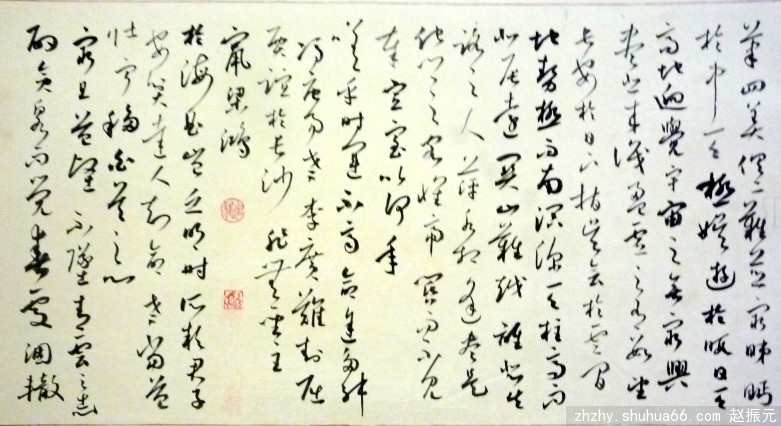 筆四美俱二難並窮睇眄
於中天極娛遊於暇日天
高地迥覺宇宙之無窮興
盡悲來識盈虛之有數望
長安於日下指吳會於雲間
地勢極而南溟深天柱高而
北辰遠關山難越誰悲失
路之人萍水相逢盡是
他鄉之客懷帝閽而不見
奉宣室以何年
嗟乎時運不齊命途多舛
馮唐易老李廣難封屈
賈誼於長沙非無聖主
竄梁鴻
於海曲豈乏明時所賴君子
安貧達人知命老當益
壯寧移白首之心
窮且益堅不墜青雲之志
酌貪泉而覺爽處涸轍
zhzhy.shuhua66.com 赵振元